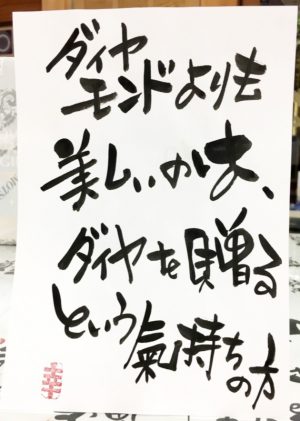 ダイヤ
モンドよりも
美しいのは、
ダイヤを贈る
という
氣持ちの方
幸